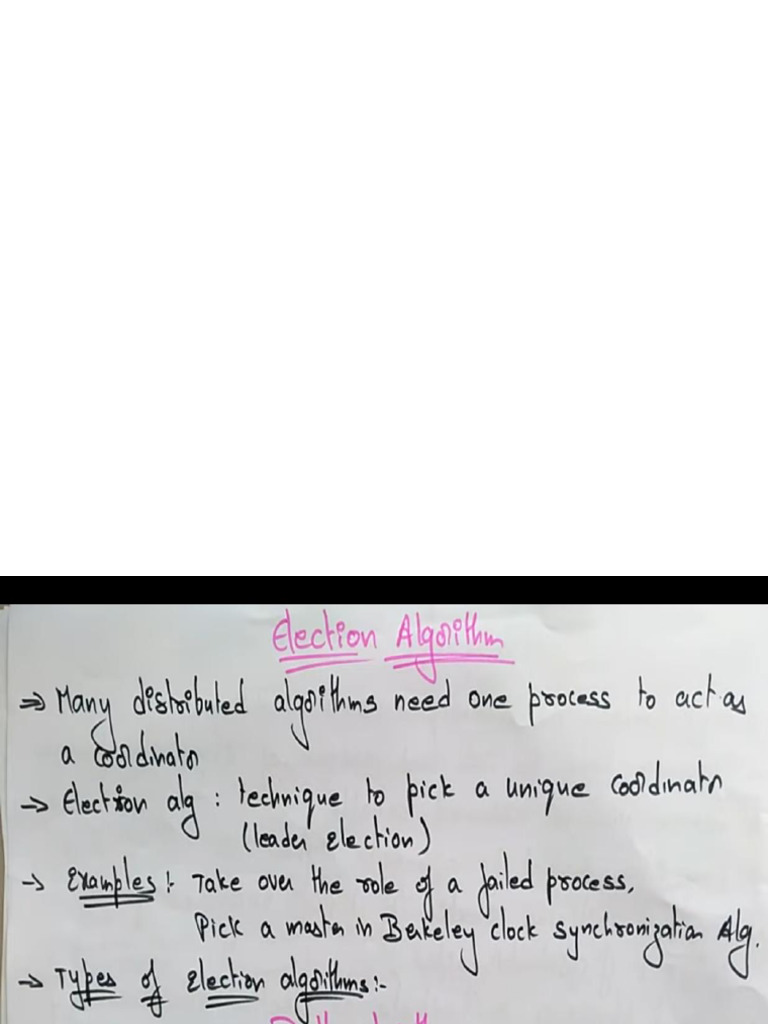 Election Algorithm
⇒ Many distributed algorithms need one process to act as
a coordinator
→ Election alg : technique to pick a unique coordinator
(leader election)
→ Examples :- Take over the role of a failed process,
Pick a master in Berkeley clock synchronization Alg.
→ Types of election algorithms:-